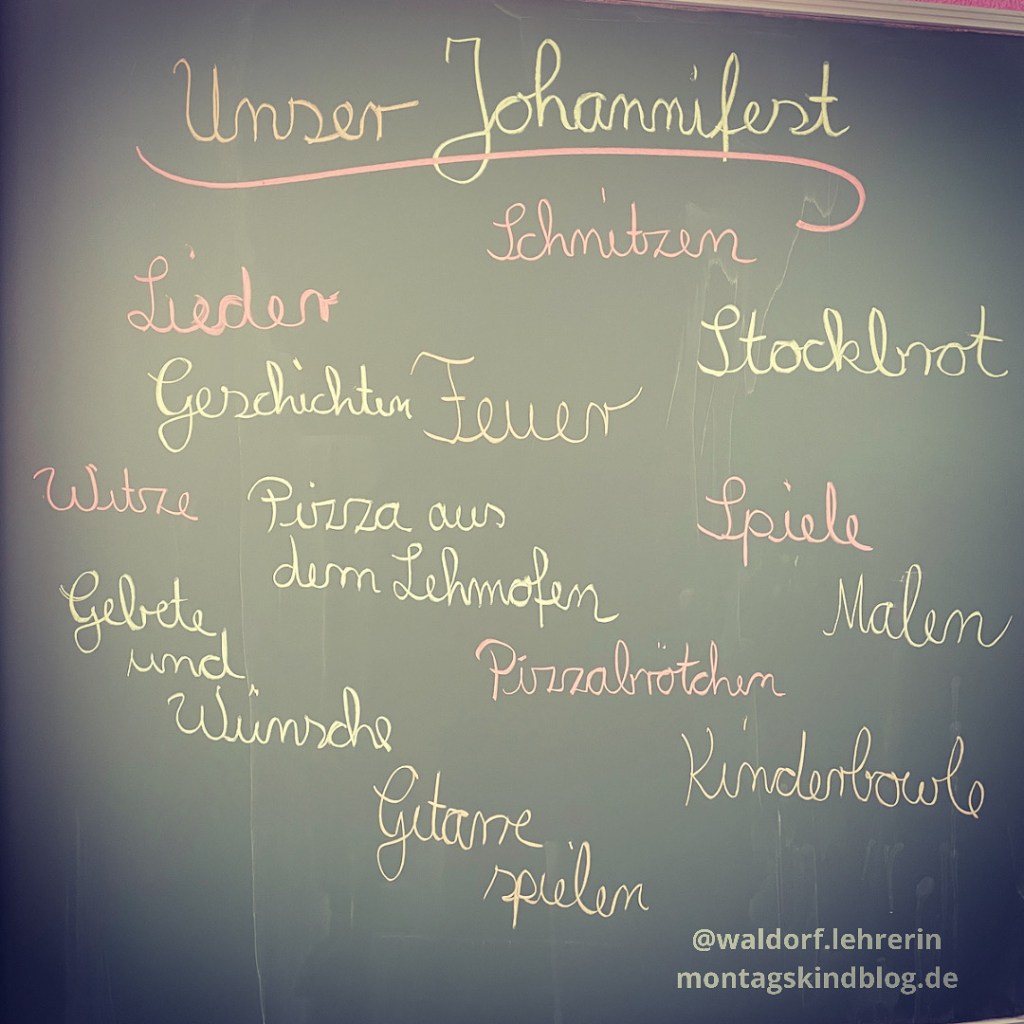 Unser Johannifest
Schnitzen
Lieder
Stockbrot
Geschichten Feuer
Witze
Pizza aus
dem Lehmofen
Spiele
Malen
Gebete
und
Wünsche
Pizzabrötchen
Kinderbowle
Gitarre
spielen
@waldorf.lehrerin
montagskindblog.de